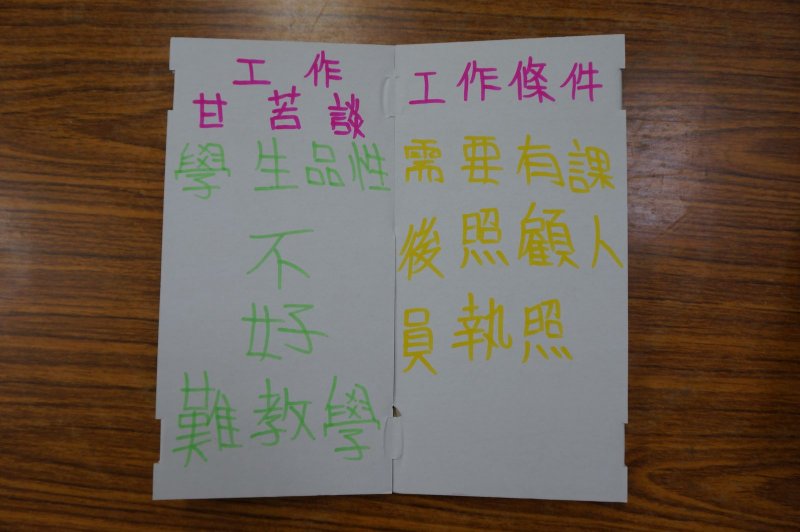 工作
甘苦談
學生品性
不
好
難教學
工作條件
需要有課
後照顧人
員執照